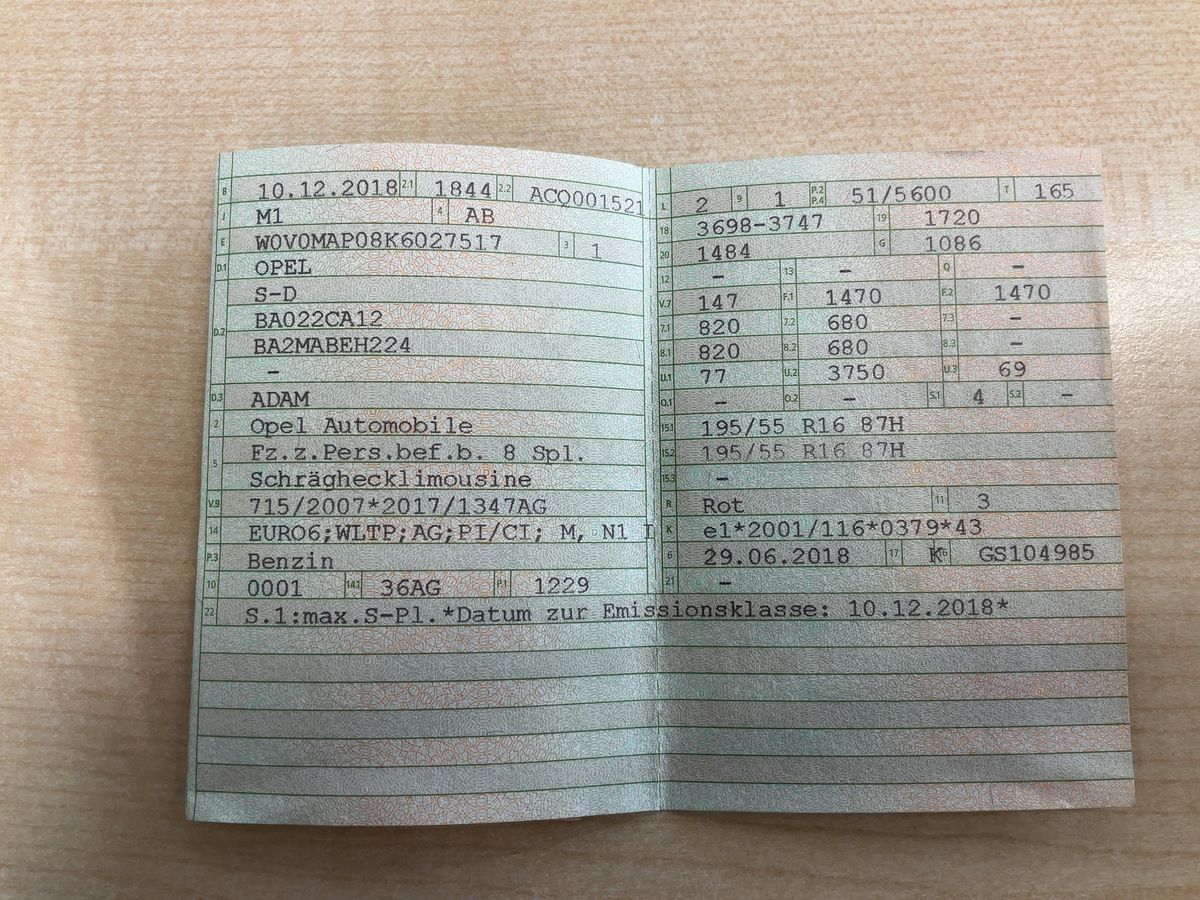 B 10.12.2018 2.1 1844 2.2 ACQ001521
J M1 4 AB
E W0V0MAP08K6027517 3 1
D.1 OPEL
S-D
D.2 BA022CA12
BA2MABEH224
–
D.3 ADAM
2 Opel Automobile
5 Fz.z.Pers.bef.b. 8 Spl.
Schräghecklimousine
V.9 715/2007*2017/1347AG
14 EURO6;WLTP;AG;PI/CI; M, N1 I
P.3 Benzin
10 0001 14.1 36AG P.1 1229
22 S.1:max.S-Pl.*Datum zur Emissionsklasse: 10.12.2018*
L 2 9 1 P.2 P.4 51/5600 T 165
18 3698-3747 19 1720
20 1484 G 1086
12 – 13 – Q –
V.7 147 F.1 1470 F.2 1470
7.1 820 7.2 680 7.3 –
8.1 820 8.2 680 8.3 –
U.1 77 U.2 3750 U.3 69
O.1 – O.2 – S.1 4 S.2 –
15.1 195/55 R16 87H
15.2 195/55 R16 87H
15.3 –
R Rot 11 3
K e1*2001/116*0379*43
6 29.06.2018 17 K 16 GS104985
21 –